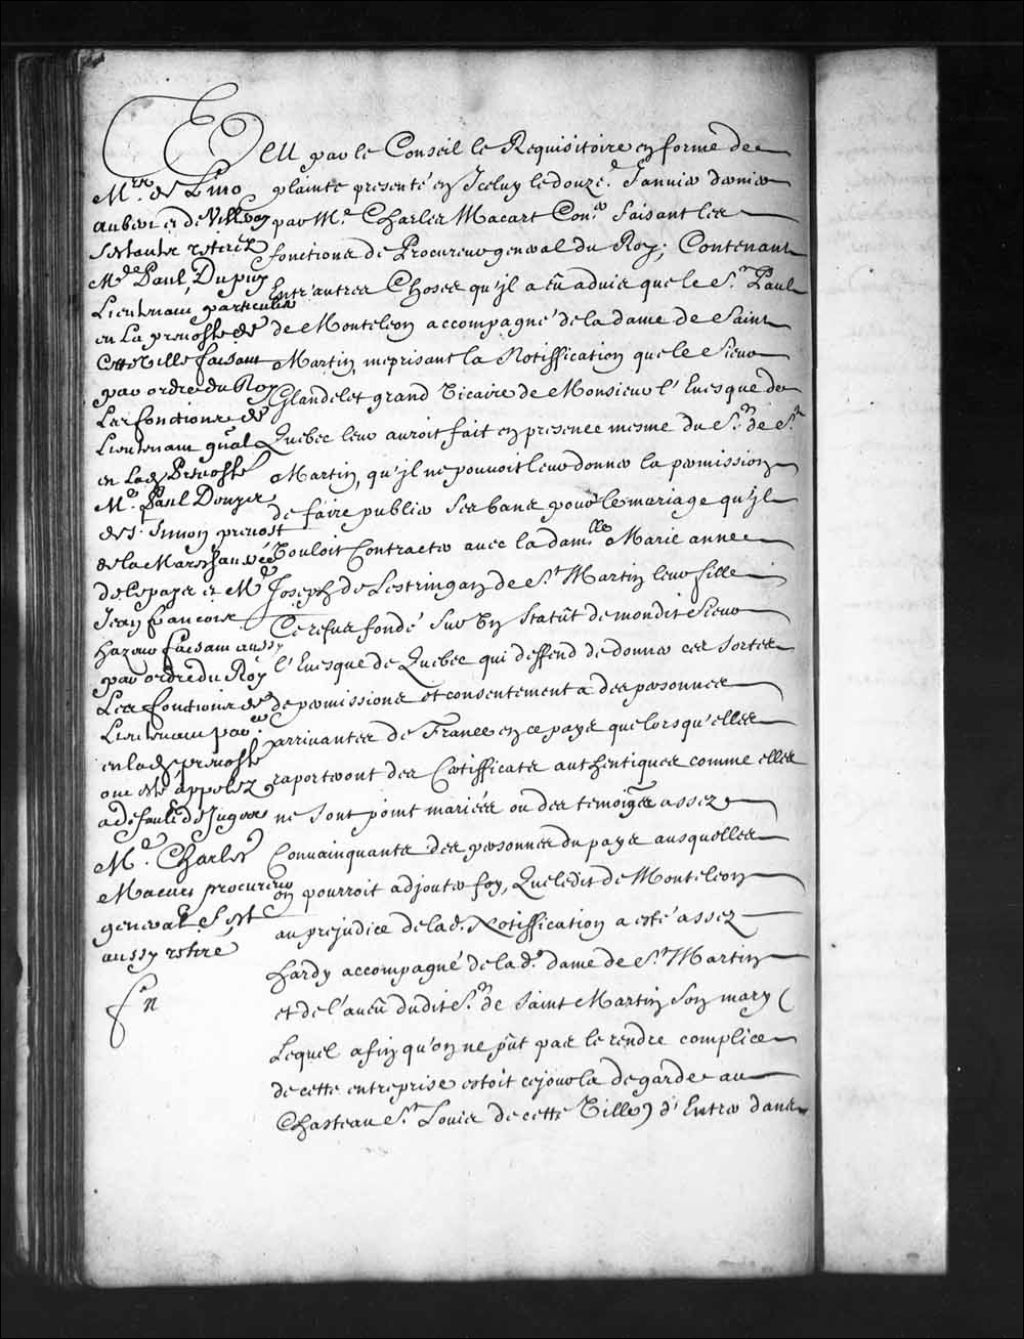 Veu par le Conseil le Requisitoire en forme de
plainte presenté en Iceluy le douze.e Januier dernier
par Me. Charles Macart Conr. faisant les
fonctions de Procureur general du Roy; Contenant
Entr'autres Choses qu'jl a eû aduis que le Sr. Paul
de Monteleon accompagné de la dame de Saint
Martin, meprisant la Notiffication que le Sieur
Glandelet grand Vicaire de Monsieur l'Euesque de
Quebec leur auroit fait en presence mesme du Sr. de St.
Martin, qu'jl ne pouuoit leur donner la permission
de faire publier ses bans pour le mariage qu'jl
Vouloit Contracter auec la damlle. Marie anne
Joseph de Lestringan de St. Martin leur fille
Ce refus fondé Sur Vn Statût de mondit Sieur
l'Euesque de Quebec qui deffend de donner ces sortes
de permissions et consentement a des personnes
arriuantes de France en ce pays que lorsqu'elles
raporteront des Certifficats authentiques comme elles
ne sont point mariées ou des temoigns assez
Conuainquants des personnes du pays ausquelles
on pourroit adjouter foy, Que ledit de Monteleon
au prejudice de lad. Notiffication a esté assez
hardy accompagné de la de. dame de St. Martin
et de l'aueû dudit Sr. de Saint Martin Son mary (
Lequel afin qu'on ne pût pas le rendre complice
de cette entreprise estoit ce jour la de garde au
Chasteau St. Louis de cette Ville) d'Entrer dans
Mrs. de Lino
aubert et de Villeray
S'estants retirez
Me. Paul Dupuy
Lieutenant particulier
en La preuosté de
Cette Ville faisant
par ordre du Roy
Les fonctions de
Lieutenant gnal
en lad. Preuosté
Me. Paul Denys
de St. Simon preuost
de la Mareschaussée
de ce pays et Me.
Jean francois
hazeur faisant aussy
par ordre du Roy
Les fonctions de
Lieutenant par.er
en lad. preuosté
ont esté appelez
a défault de Juges
Me. Charles
Macart procureur
general S'est
aussy retiré